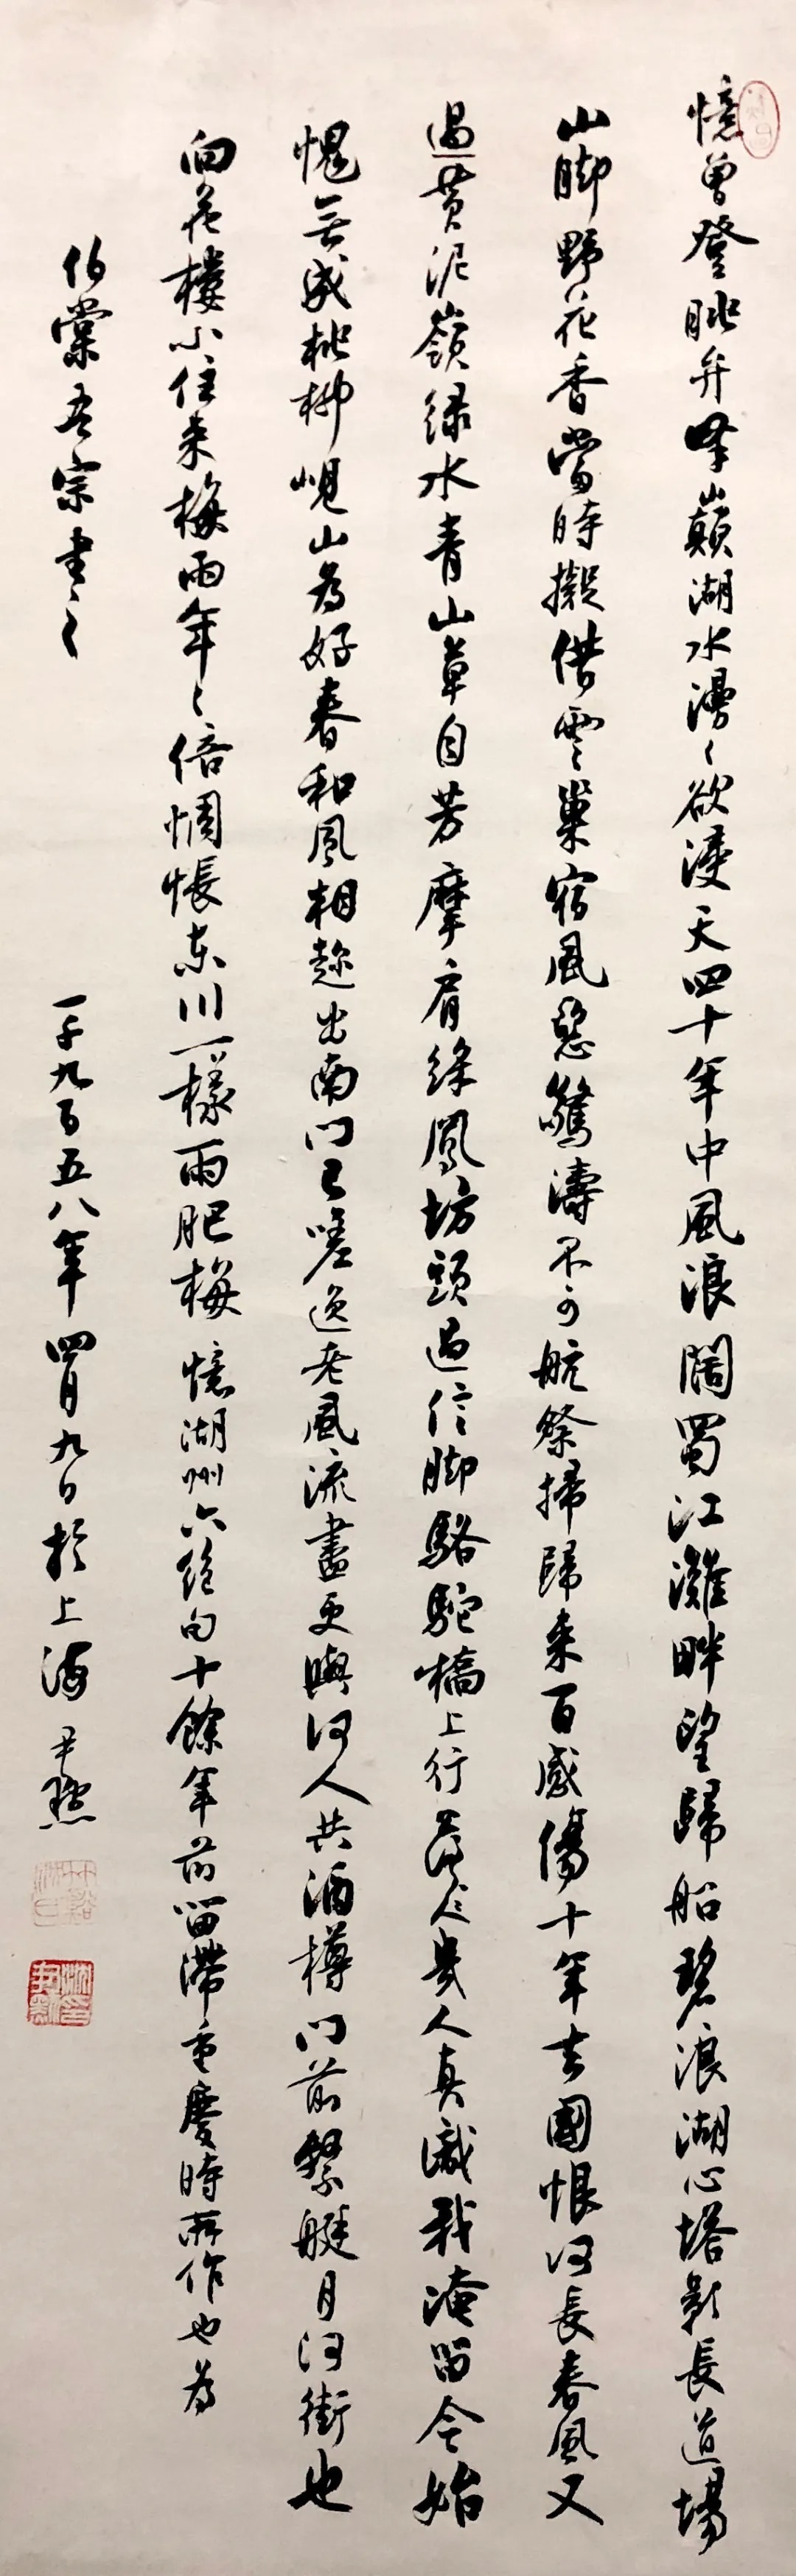 憶曾登眺弁峯巔湖水漫〻欲浸天四十年中風浪闊蜀江灘畔望歸船碧浪湖心塔影長道場
山腳野花香當時擬借雲巢宿風惡驚濤不可航祭掃歸來百感傷十年去國恨何長春風又
過黃泥嶺綠水青山草自芳摩肩綵鳳坊頭過信腳駱駝橋上行落〻幾人真識我淹留今始
愧無成桃柳峴山為好春和風相趂出南門已嗟逸老風流盡更與何人共酒樽門前繫艇月河街也
向花樓小住來梅雨年〻倍惆悵東川一樣雨肥梅 憶湖州六絕句十餘年前留滯重慶時所作也為
伯棠吾宗書之
一千九百五八年四月九日於上海 尹默
沈尹默